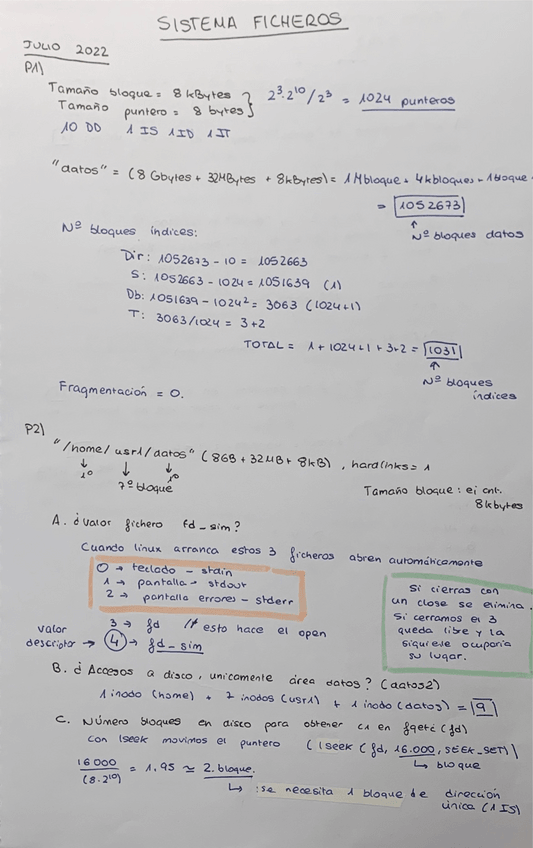 SISTEMA FICHEROS
JULIO 2022
P1)
Tamaño bloque = 8 kBytes
Tamaño puntero = 8 bytes } 2³·2¹⁰/2³ = 1024 punteros
10 DD 1 IS 1 ID 1 IT
"datos" = (8 Gbytes + 32MBytes + 8kBytes) = 1 Mbloque + 4 kbloques + 1 bloque
= 1052673
↑
Nº bloques datos
Nº bloques índices:
Dir: 1052673 - 10 = 1052663
S: 1052663 - 1024 = 1051639 (1)
Db: 1051639 - 1024² = 3063 (1024+1)
T: 3063/1024 = 3+2
TOTAL = 1 + 1024+1 + 3+2 = 1031
↑
Nº bloques índices
Fragmentación = 0.
P2)
"/home/usr1/datos" (8GB + 32MB + 8kB), hardlinks = 1
↓ ↓ ↓
1º 1º
7º bloque
Tamaño bloque: ej ant.
8kbytes
A. ¿valor fichero fd_sim?
Cuando linux arranca estos 3 ficheros abren automáticamente
0 → teclado - stdin
1 → pantalla - stdout
2 → pantalla errores - stderr
3 → fd // esto hace el open
valor descriptor → 4 → fd_sim
Si cierras con
un close se elimina.
Si cerramos el 3
queda libre y la
siguiese ocuparía
su lugar.
B. ¿Accesos a disco, unicamente área datos? (datos2)
1 inodo (home) + 2 inodos (usr1) + 1 inodo (datos) = 9
C. Número bloques en disco para obtener c1 en fgetc (fd)
con lseek movimos el puntero (lseek (fd, 16.000, SEEK_SET))
↳ bloque
16000/(8·2¹⁰) = 1.95 ≃ 2. bloque.
↳ : se necesita 1 bloque de dirección
única (1 IS)